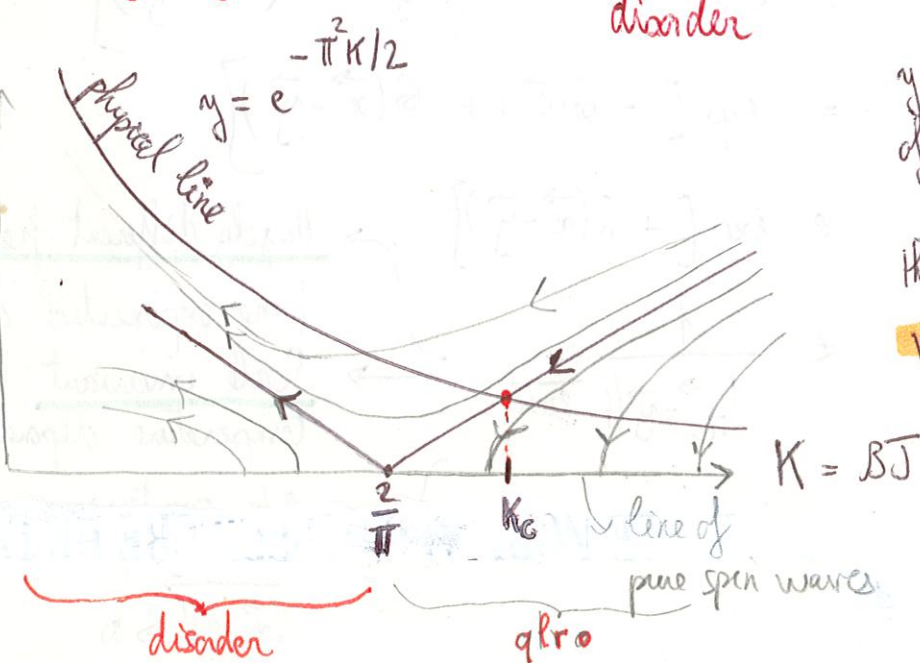 disorder
y = e^{-π²K/2}
physical line
y
2/π
K_c
K = βJ
line of
pure spin waves
disorder
qlro